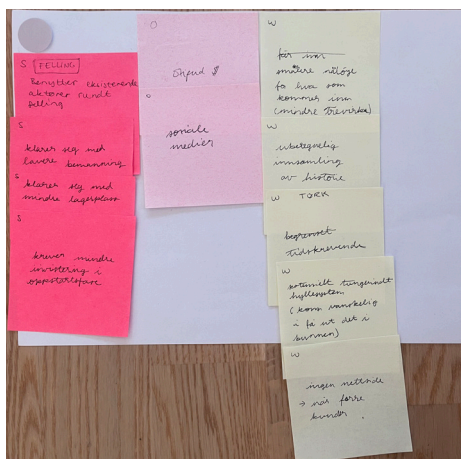 S FELLING
Benytter eksisterende
aktører rundt
felling
S
klarer seg med
lavere bemanning
S
klarer seg med
mindre lagerplass
S
krever mindre
investering i
oppstartsfase
O
O
sosiale
medier
W
får inn
smalere utvalg
fra hva som
kommer inn
(mindre treverk)
W
ubetegnelig
innsamling
av historie
W TØRK
begrenset
tidskrevende
W
potensielt tungvindt
hyllesystem
(kan vanskelig
i få ut det i
bunnen)
W
ingen nettside
→ når færre
kunder.